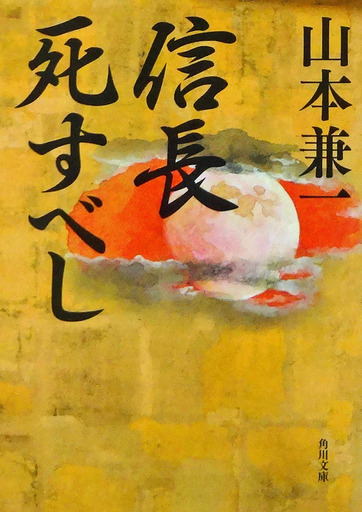 山本兼一
信長
死すべし
角川文庫